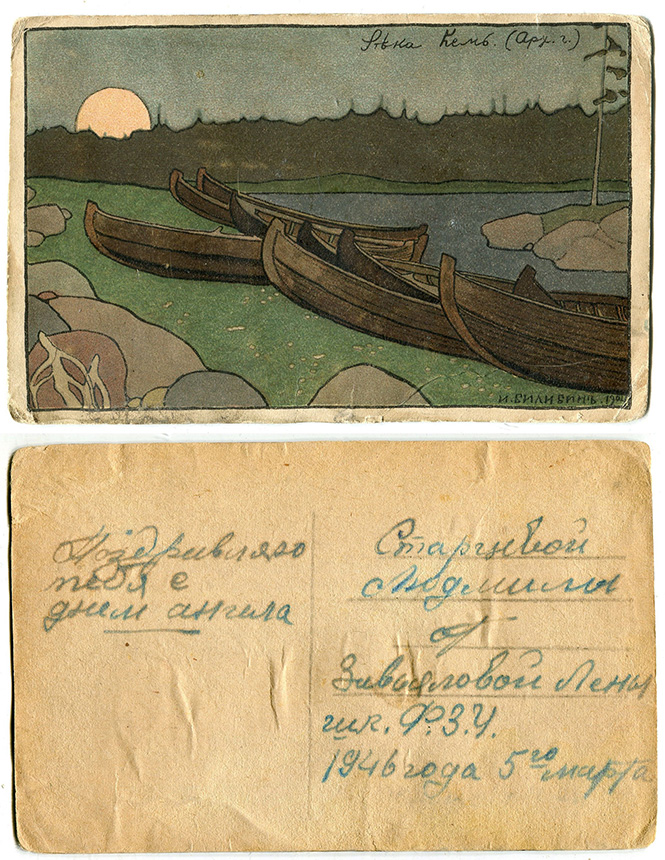 Рѣка Кемь. (Арх. г.)
И. БИЛИБИНЪ. 1904
Поздравляю
тебя с
днем ангела
Старцевой
Людмилы
от
Завьяловой Лены
шк. Ф.З.У.
1946 года 5го марта